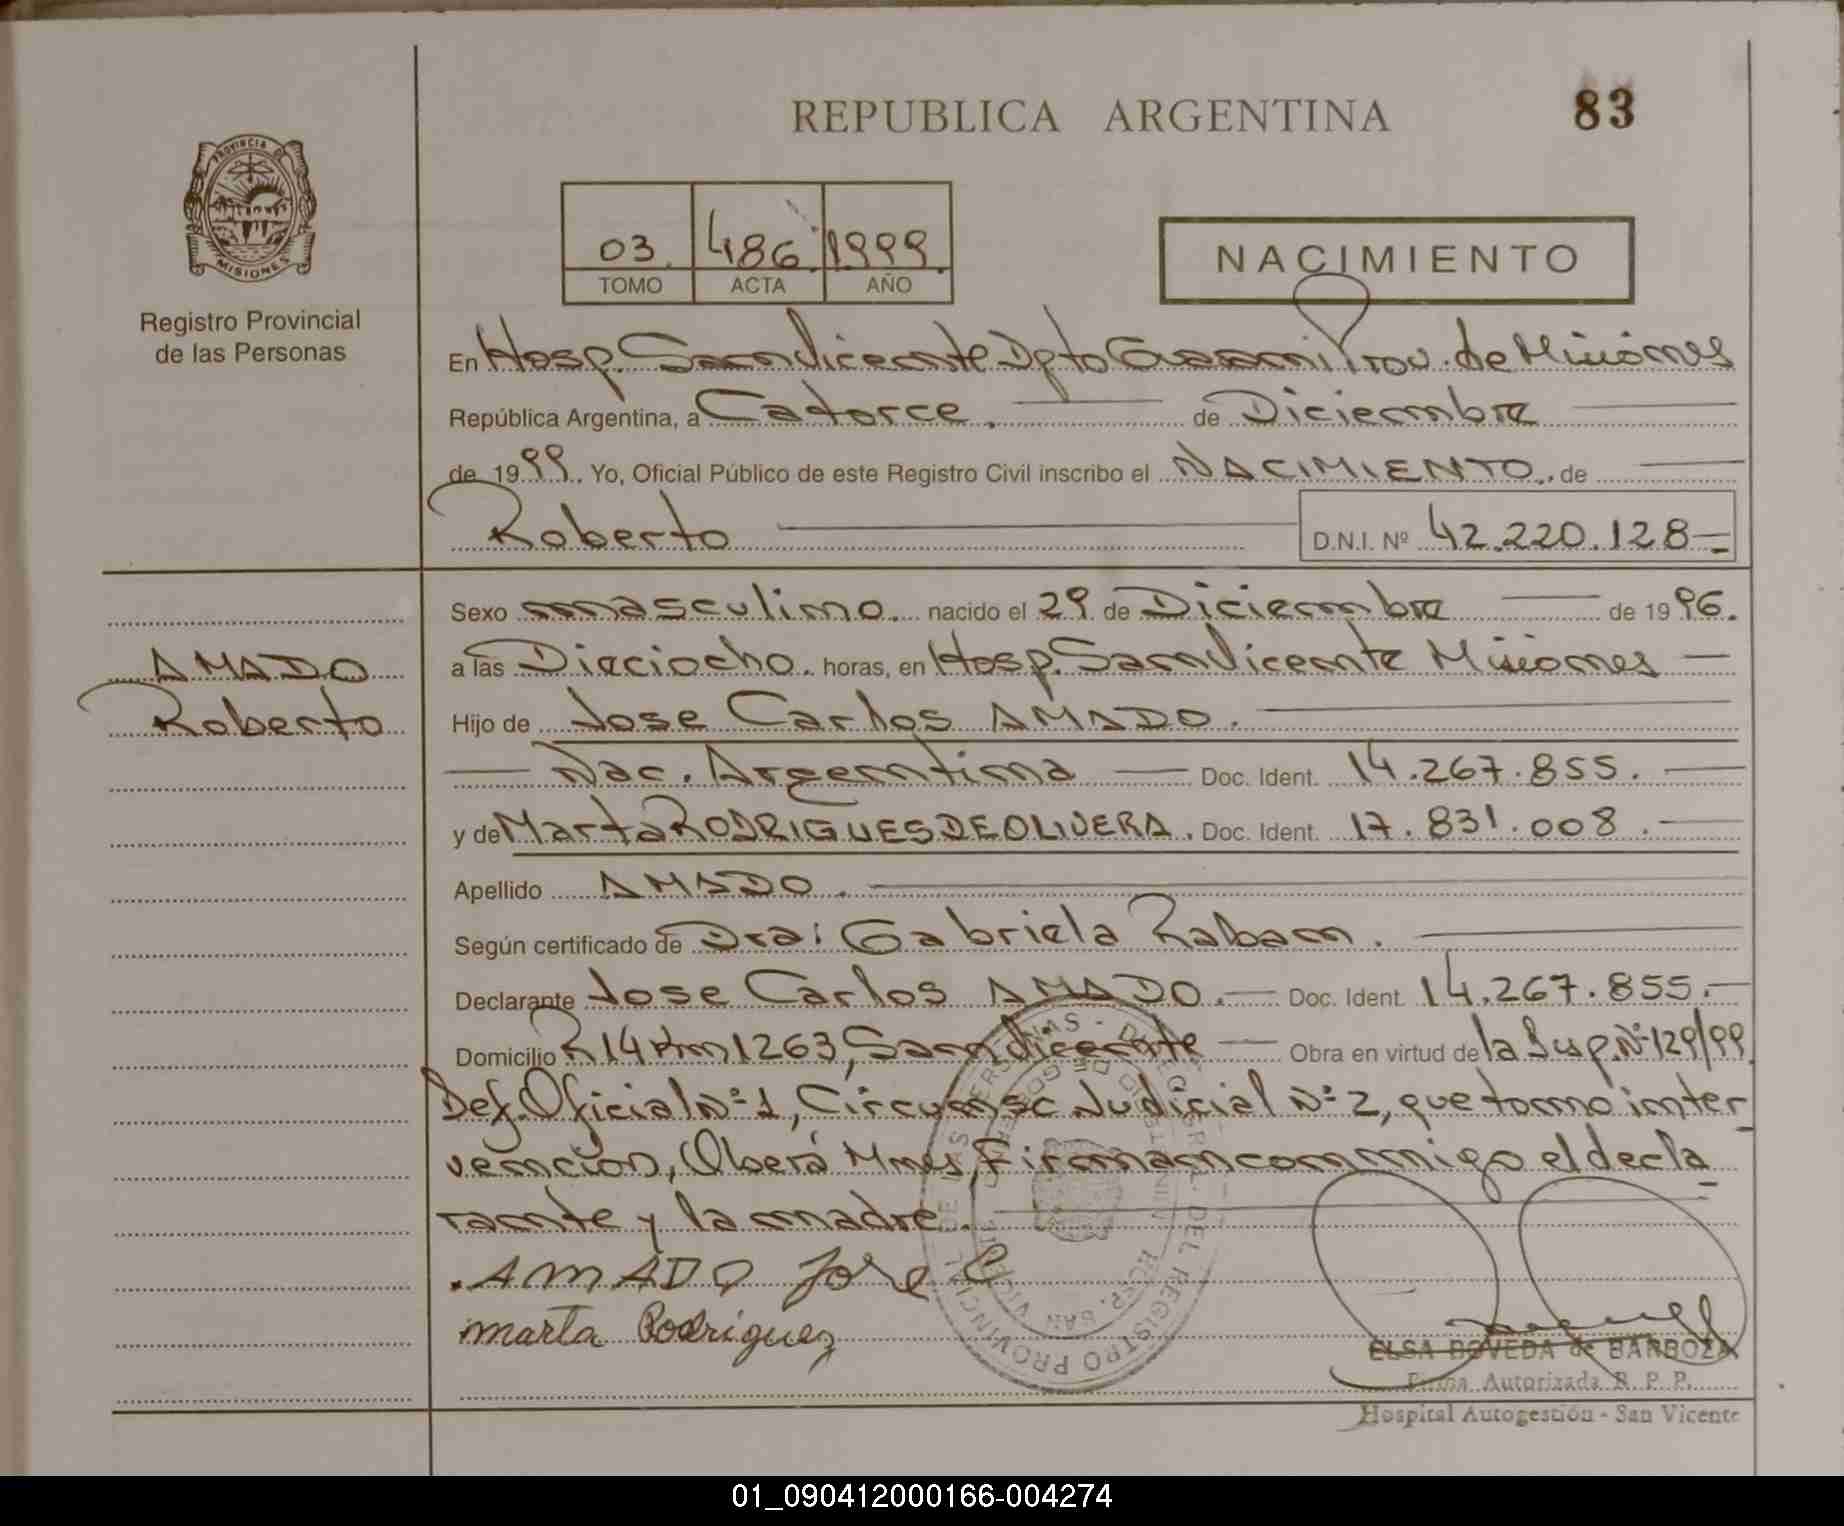 REPUBLICA ARGENTINA
83
PROVINCIA DE
MISIONES
Registro Provincial
de las Personas
03. 486. 1999.
TOMO ACTA AÑO
NACIMIENTO
En Hosp. San Vicente Dpto Guarani Prov. de Misiones
República Argentina, a Catorce. de Diciembre
de 1999. Yo, Oficial Público de este Registro Civil inscribo el NACIMIENTO. de
Roberto D.N.I. Nº 42.220.128-
AMADO
Roberto
Sexo masculino. nacido el 29 de Diciembre de 1996.
a las Dieciocho. horas, en Hosp. San Vicente Misiones
Hijo de Jose Carlos AMADO.
Nac. Argentina Doc. Ident. 14.267.855.
y de Marta RODRIGUES DE OLIVERA. Doc. Ident. 17.831.008.
Apellido AMADO.
Según certificado de Dra: Gabriela Raban.
Declarante Jose Carlos AMADO. Doc. Ident. 14.267.855.
Domicilio R 14 Km 1263, San Vicente Obra en virtud de la Susp. Nº 129/99
Def. Oficial Nº 1, Circunsc Judicial Nº 2, que tomo inter
vencion, Oberá Mnes, Firman conmigo el decla
rante y la madre.
AMADO Jose C
Marta Rodriguez
REGISTRO PROVINCIAL DE LAS PERSONAS
HOSP. SAN VICENTE
ELSA BOVEDA de BARBOZA
Firma Autorizada R. P. P.
Hospital Autogestión - San Vicente
01_090412000166-004274